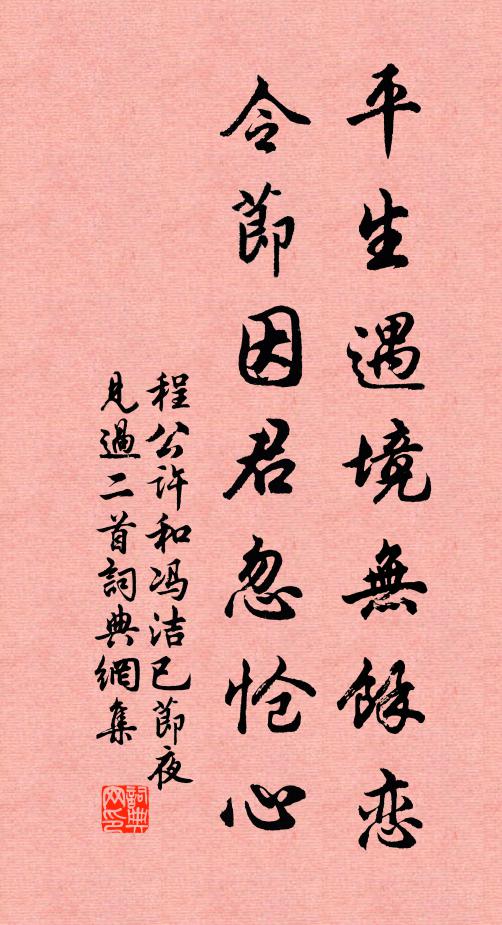 平生遇境無餘恋
令節因君忽怆心
程公許和冯洁己節夜
見過二首詞典網集
詞典网印